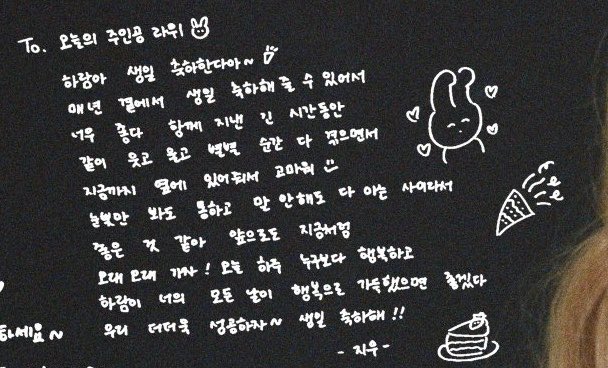 To. 오늘의 주인공 라위
하람아 생일 축하한다아~
매년 곁에서 생일 축하해 줄 수 있어서
너무 좋다 함께 지낸 긴 시간동안
같이 웃고 울고 별별 순간 다 겪으면서
지금까지 옆에 있어줘서 고마워
눈빛만 봐도 통하고 말 안해도 다 아는 사이라서
좋은 것 같아 앞으로도 지금처럼
오래 오래 가자! 오늘 하루 누구보다 행복하고
하람이 너의 모든 날이 행복으로 가득했으면 좋겠다
하세요~ 우리 더더욱 성공하자~ 생일 축하해!!
- 지우 -